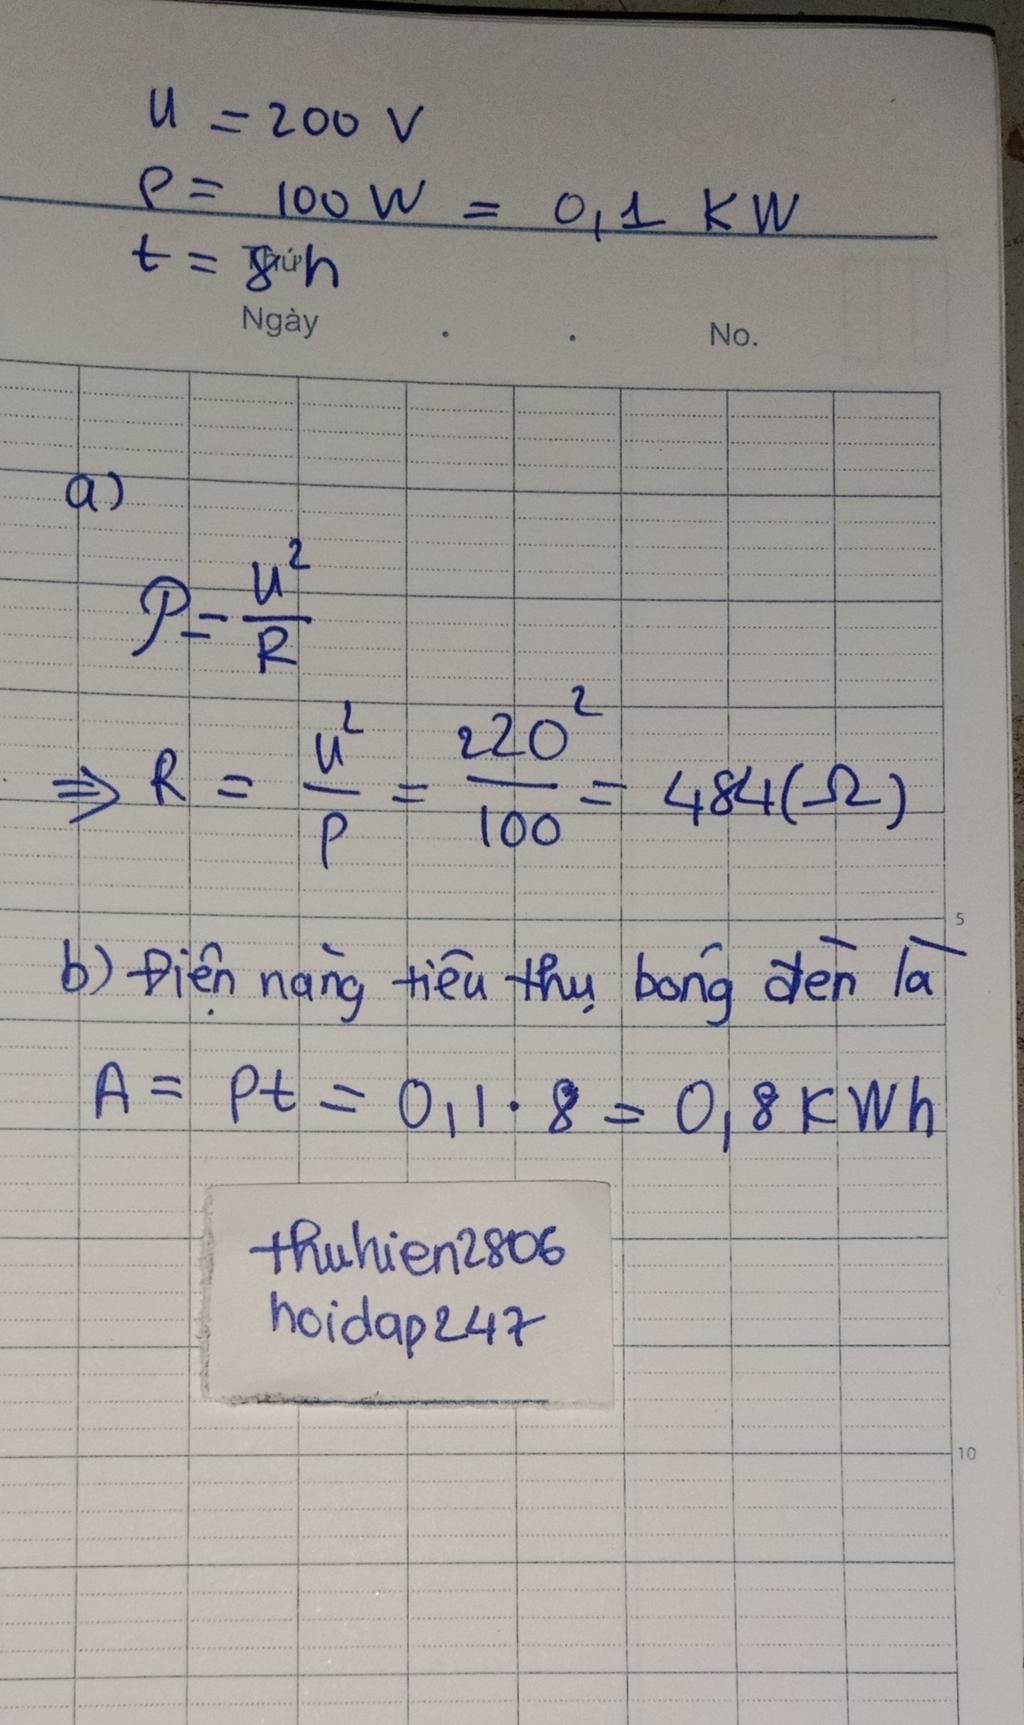 U = 200 V
P = 100 W = 0,1 KW
t = 8 h
Thứ
Ngày . . No.
a)
P = U² / R
⇒ R = U² / P = 220² / 100 = 484 (Ω)
5
b) Điện năng tiêu thụ bóng đèn là
A = Pt = 0,1 . 8 = 0,8 KWh
thuhien2806
hoidap247
10